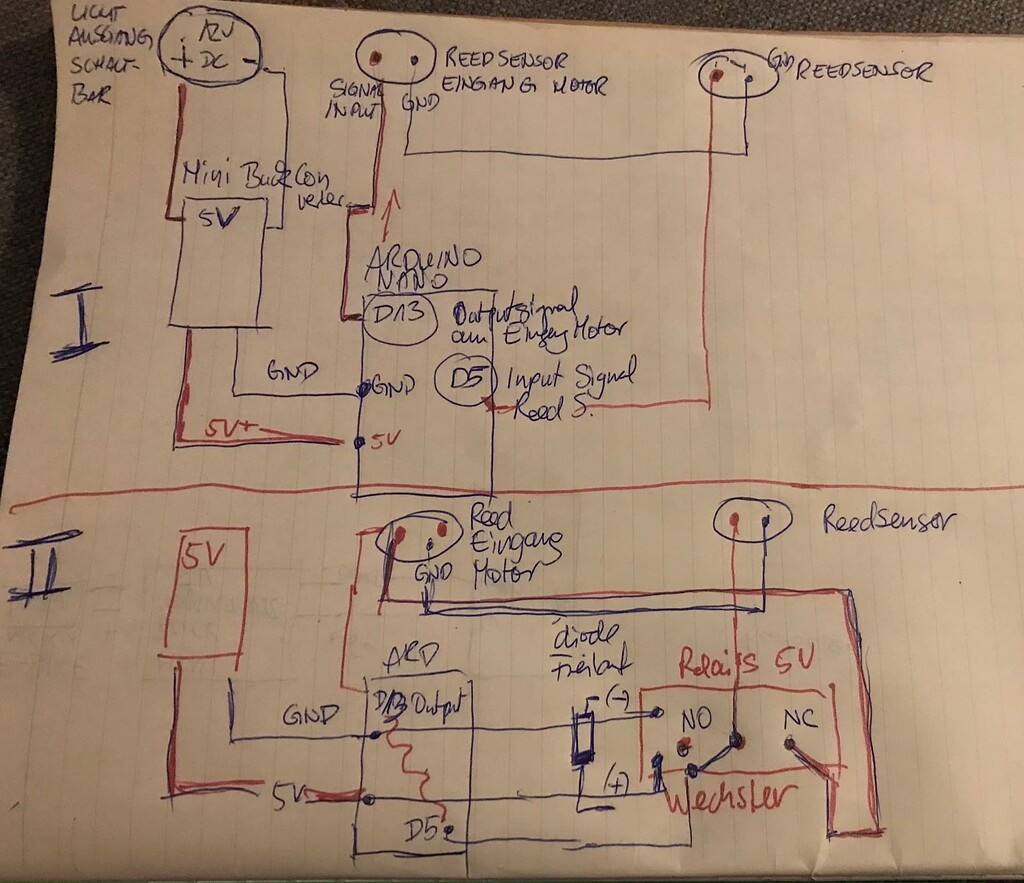 LICHT
AUSGANG
SCHALT-
BAR
12V
+ DC -
REEDSENSOR
EINGANG MOTOR
SIGNAL
INPUT
GND
GND
REEDSENSOR
Mini Buck Con
verter
5V
I
ARDUINO
NANO
D13
Outputsignal
am Eingang Motor
D5
Input Signal
Reed S.
GND
GND
5V+
5V
II
5V
Reed
Eingang
Motor
GND
Reedsensor
diode
Freilauf
ARD
D13 Output
GND
5V
D5
(-)
(+)
Relais 5V
NO
NC
Wechsler